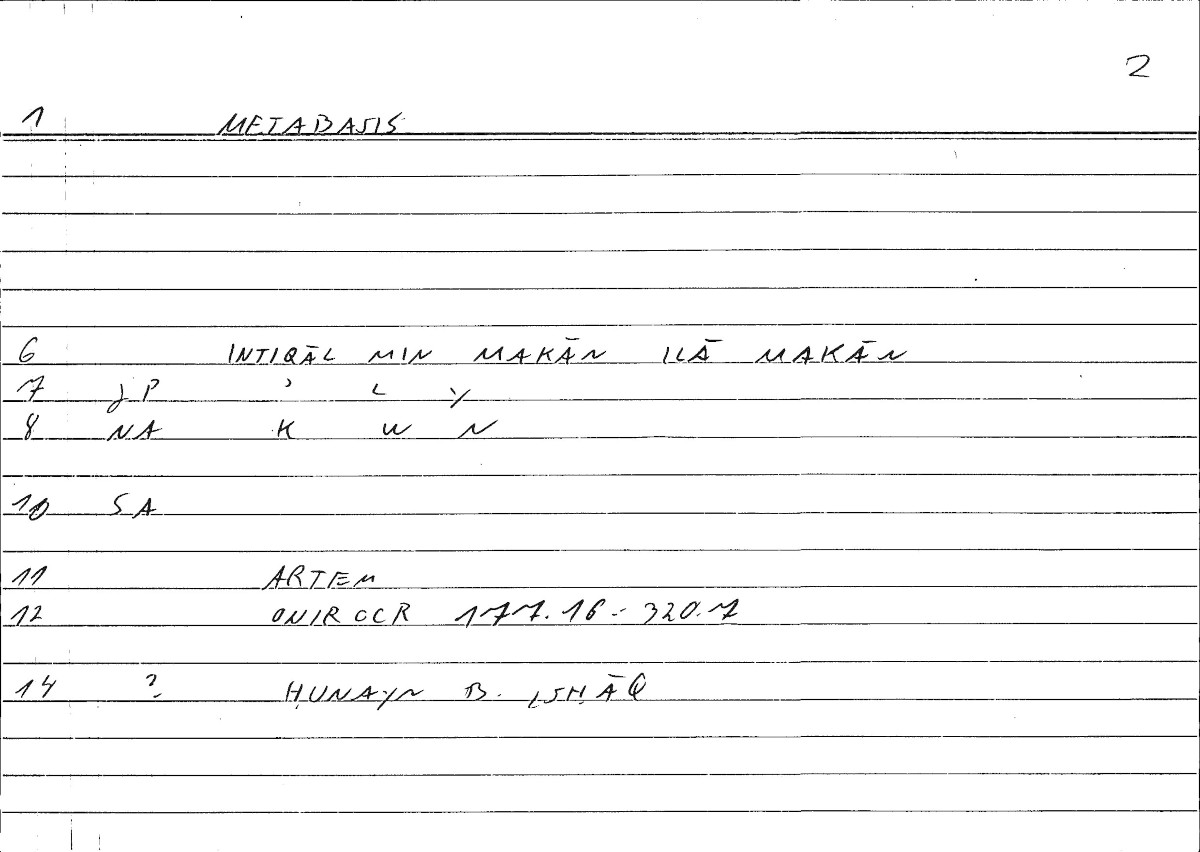 2
1 METABASIS
6 INTIQĀL MIN MAKĀN ILĀ MAKĀN
7 JP ʾ L Y
8 NA K W N
10 SA
11 ARTEM
12 ONIROCR 177.16 - 320.7
14 ? ḤUNAYN B. ISḤĀQ